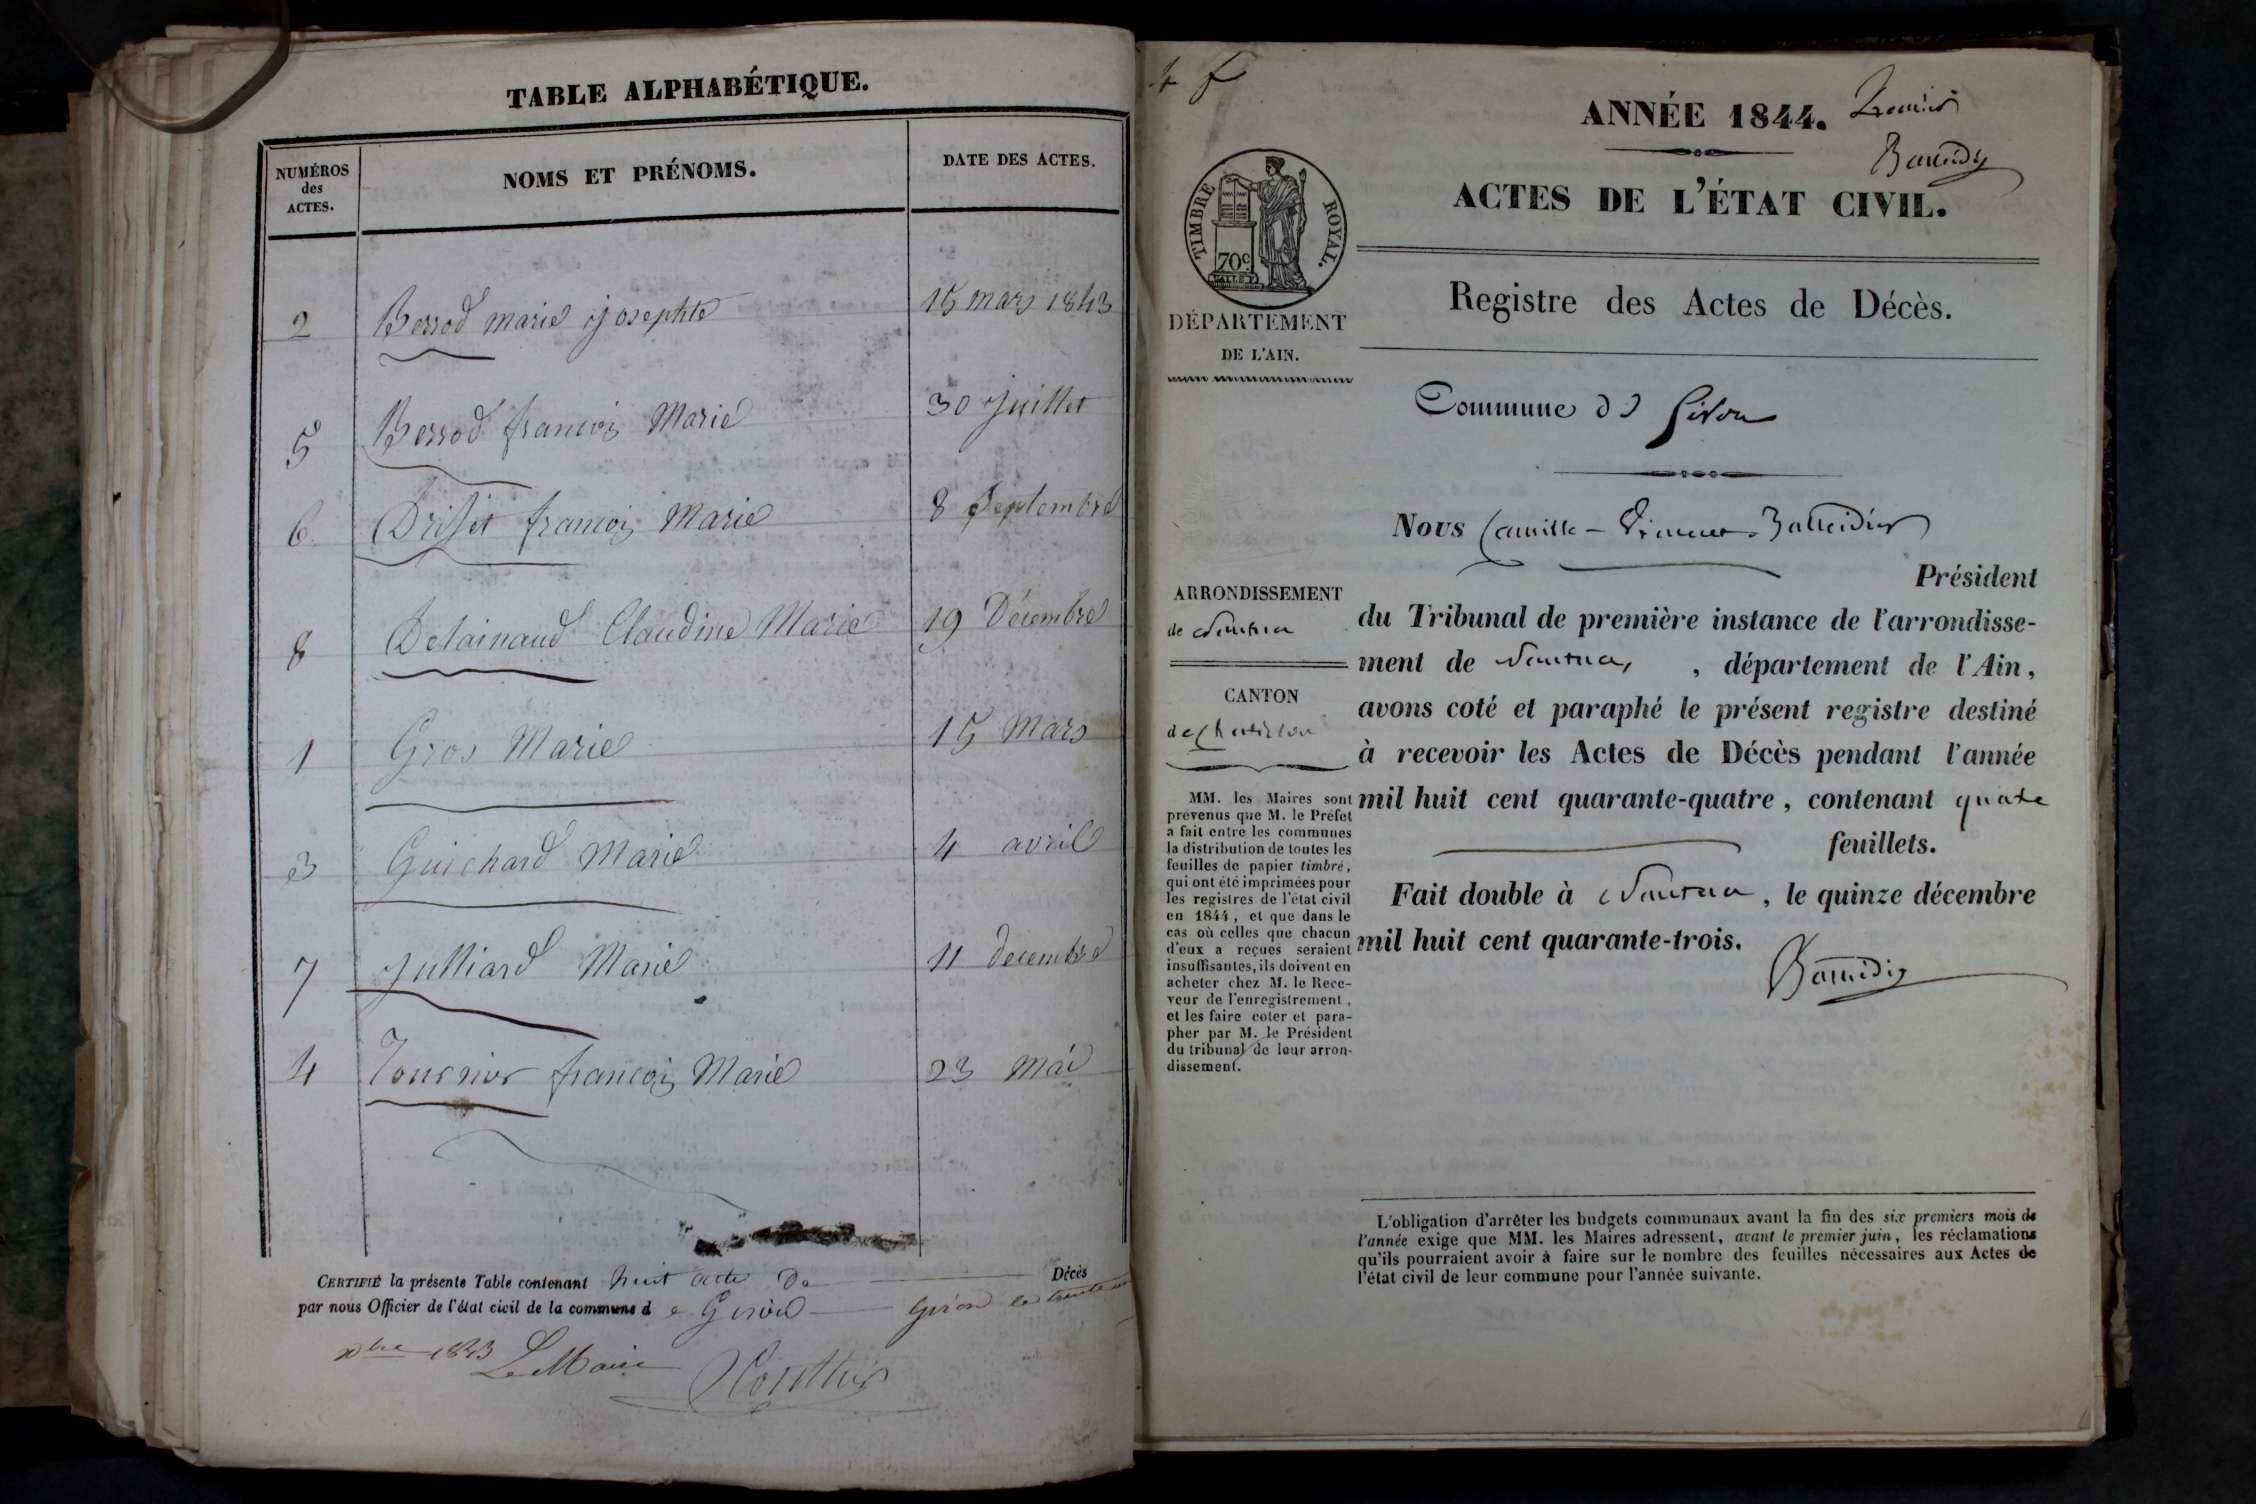 TABLE ALPHABÉTIQUE.
NUMÉROS
des
ACTES.
NOMS ET PRÉNOMS.
DATE DES ACTES.
2 Berrod marie josephte 15 mars 1843
5 Berrod francois Marie 30 juillet
6 Driset francois Marie 8 septembre
8 Detainaud Claudine Marie 19 Décembre
1 Gros Marie 15 Mars
3 Guichard Marie 4 avril
7 Julliard Marie 11 decembre
4 Tournier francois Marie 23 Mai
CERTIFIÉ la présente Table contenant huit acte De Décès
par nous Officier de l'état civil de la commune de Giron Giron le
xbre 1843 Le Maire
ANNÉE 1844. Premier
ACTES DE L'ÉTAT CIVIL.
TIMBRE ROYAL.
70c
Registre des Actes de Décès.
DÉPARTEMENT
DE L'AIN.
Commune de Giron
Nous Camille
Président
du Tribunal de première instance de l'arrondisse-
ment de Nantua, , département de l'Ain,
avons coté et paraphé le présent registre destiné
à recevoir les Actes de Décès pendant l'année
mil huit cent quarante-quatre, contenant quatre
feuillets.
Fait double à Nantua, le quinze décembre
mil huit cent quarante-trois.
ARRONDISSEMENT
de Nantua
CANTON
de Chatillon
MM. les Maires sont
prévenus que M. le Préfet
a fait entre les communes
la distribution de toutes les
feuilles de papier timbré,
qui ont été imprimées pour
les registres de l'état civil
en 1844, et que dans le
cas où celles que chacun
d'eux a reçues seraient
insuffisantes, ils doivent en
acheter chez M. le Rece-
veur de l'enregistrement,
et les faire coter et para-
pher par M. le Président
du tribunal de leur arron-
dissement.
L'obligation d'arrêter les budgets communaux avant la fin des six premiers mois de
l'année exige que MM. les Maires adressent, avant le premier juin, les réclamations
qu'ils pourraient avoir à faire sur le nombre des feuilles nécessaires aux Actes de
l'état civil de leur commune pour l'année suivante.